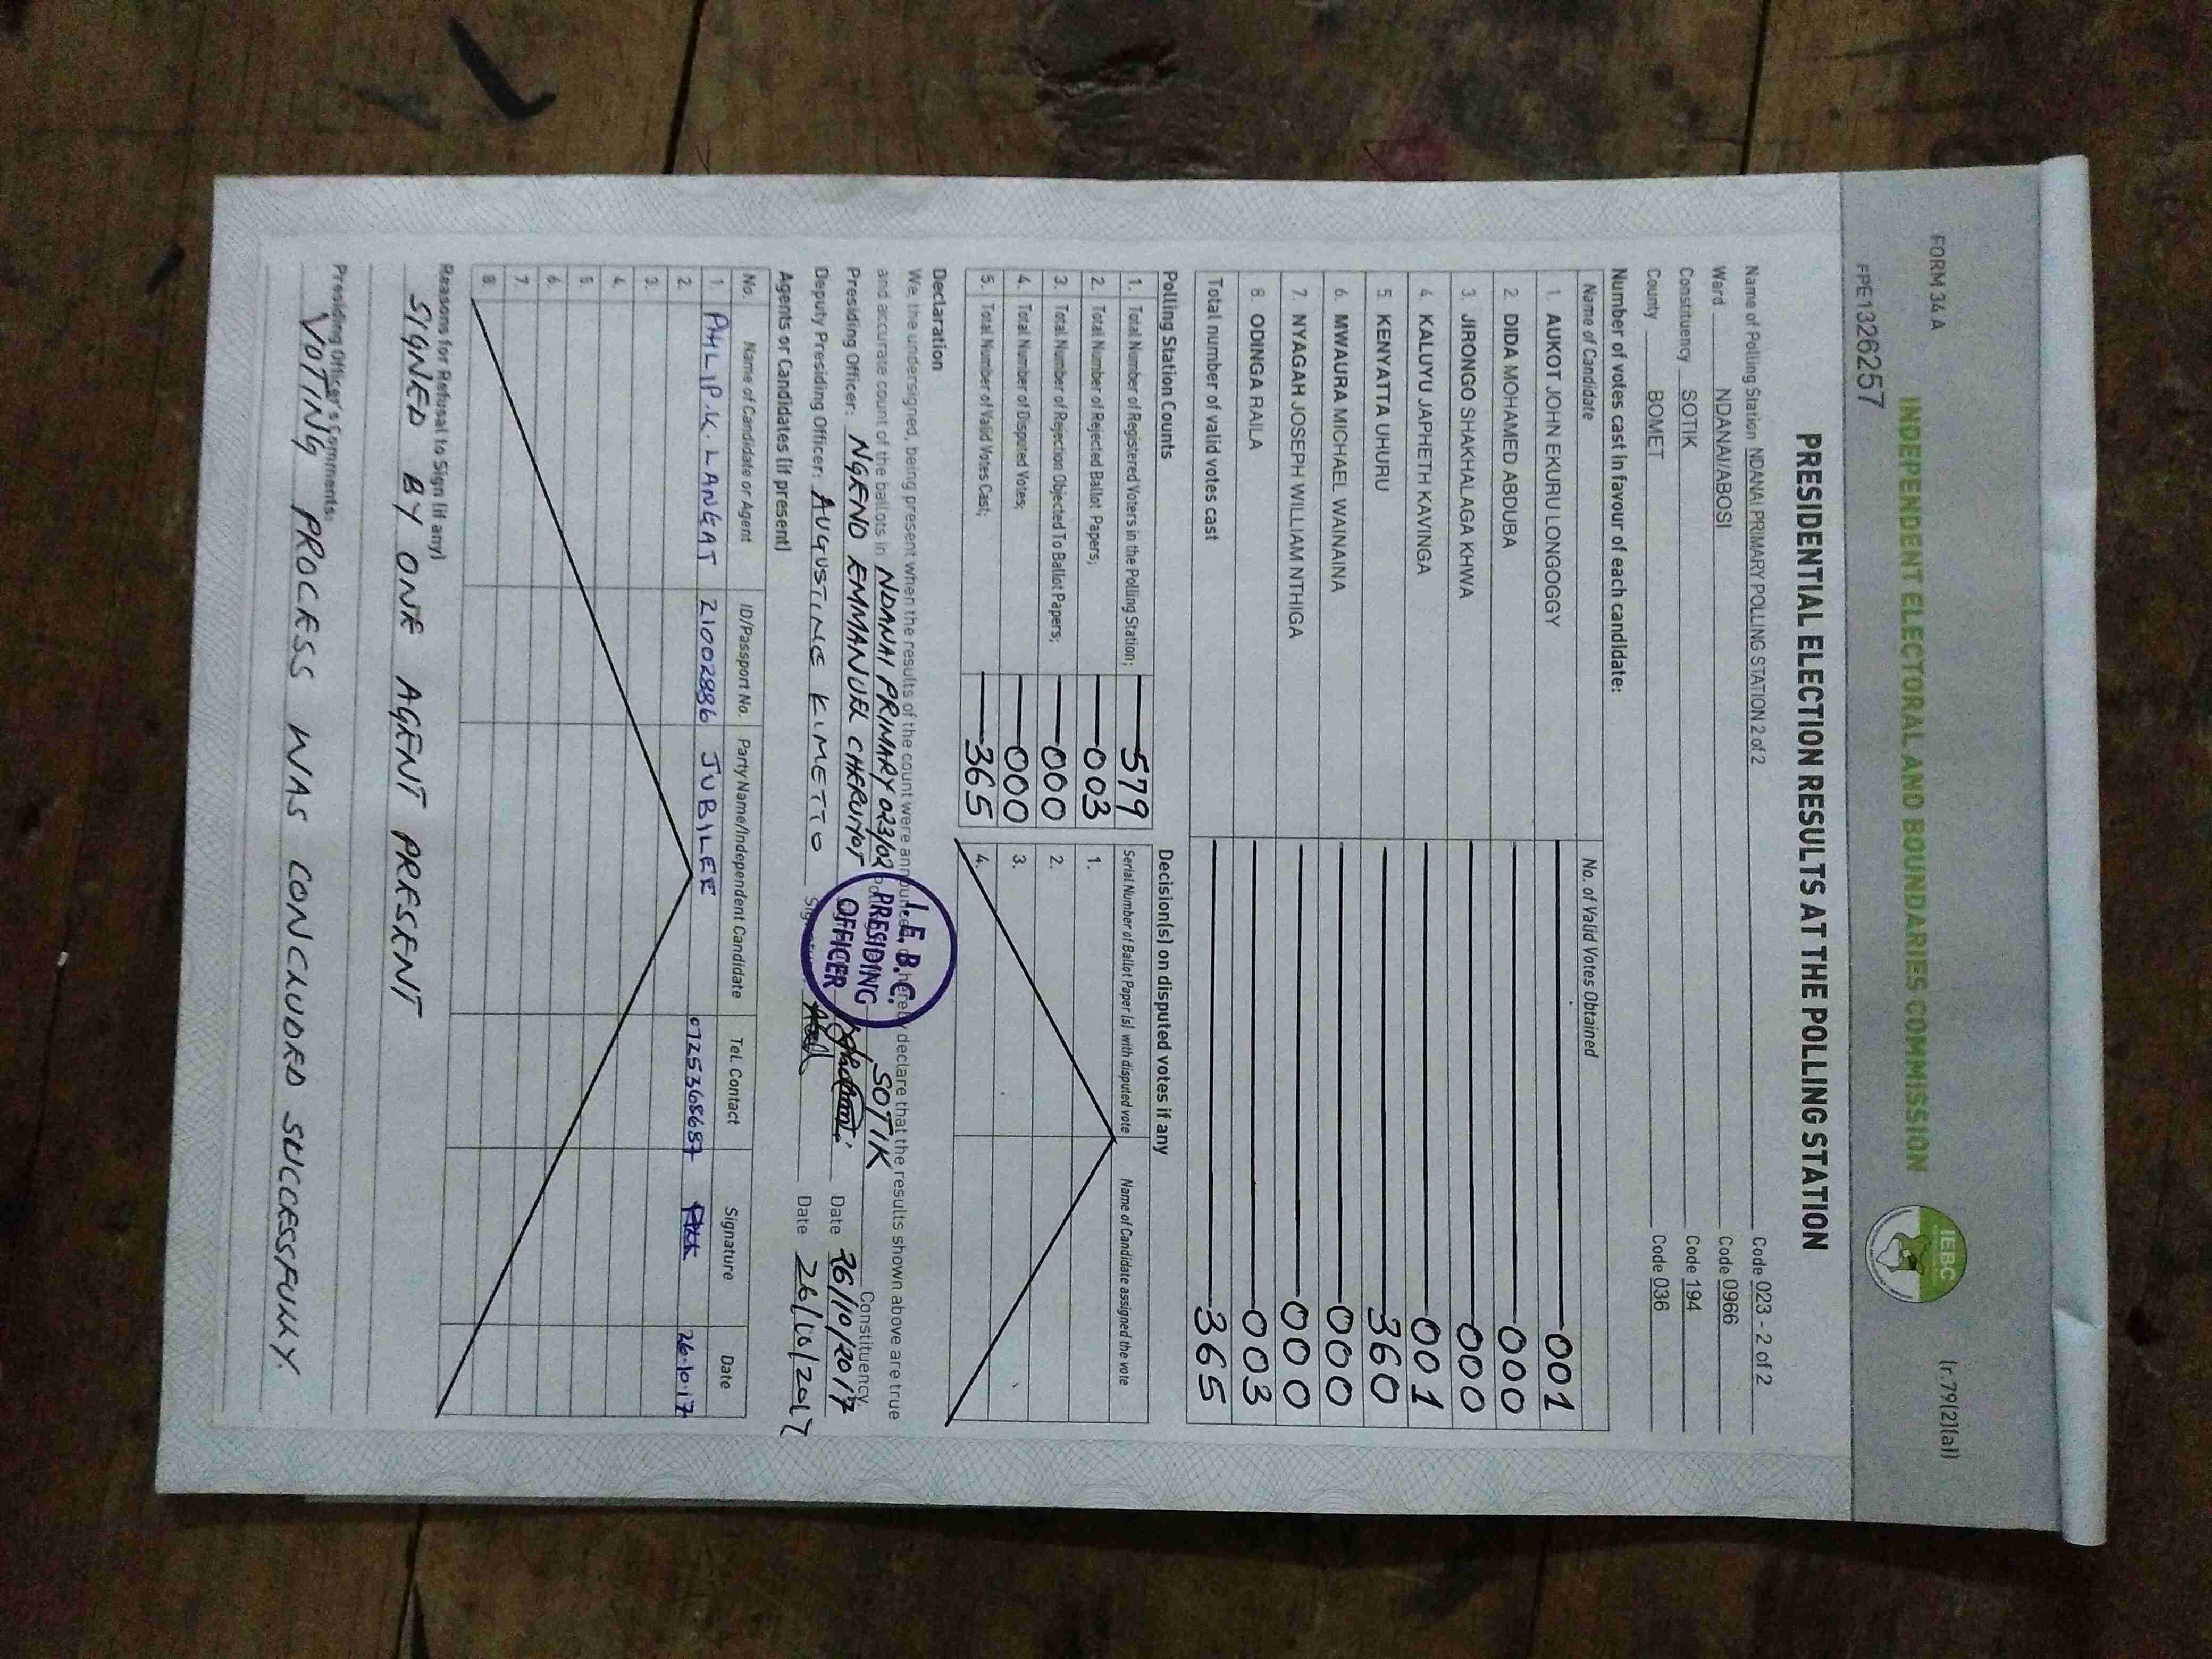 FORM 34 A
(r.79(2)(a))
INDEPENDENT ELECTORAL AND BOUNDARIES COMMISSION
IEBC
PPE1326257
PRESIDENTIAL ELECTION RESULTS AT THE POLLING STATION
Name of Polling Station NDANAI PRIMARY POLLING STATION 2 of 2 Code 023 - 2 of 2
Ward NDANAI/ABOSI Code 0966
Constituency SOTIK Code 194
County BOMET Code 036
Number of votes cast in favour of each candidate:
Name of Candidate No. of Valid Votes Obtained
1. AUKOT JOHN EKURU LONGOGGY 001
2. DIDA MOHAMED ABDUBA 000
3. JIRONGO SHAKHALAGA KHWA 000
4. KALUYU JAPHETH KAVINGA 001
5. KENYATTA UHURU 360
6. MWAURA MICHAEL WAINAINA 000
7. NYAGAH JOSEPH WILLIAM NTHIGA 000
8. ODINGA RAILA 003
Total number of valid votes cast 365
Polling Station Counts
1. Total Number of Registered Voters in the Polling Station; 579
2. Total Number of Rejected Ballot Papers; 003
3. Total Number of Rejection Objected To Ballot Papers; 000
4. Total Number of Disputed Votes; 000
5. Total Number of Valid Votes Cast; 365
Decision(s) on disputed votes if any
Serial Number of Ballot Paper (s) with disputed vote Name of Candidate assigned the vote
1.
2.
3.
4.
Declaration
We, the undersigned, being present when the results of the count were announced, hereby declare that the results shown above are true
and accurate count of the ballots in NDANAI PRIMARY 023/02 SOTIK Constituency
Presiding Officer: NGENO EMMANUEL CHERUIYOT Date 26/10/2017
Deputy Presiding Officer: AUGUSTINE KIMETTO Date 26/10/2017
I.E.B.C.
PRESIDING
OFFICER
Agents or Candidates (if present)
No. Name of Candidate or Agent ID/Passport No. Party Name/Independent Candidate Tel. Contact Signature Date
1 PHLIP.K.LANGAT 21002886 JUBILEE 0725368687 26.10.17
2.
3.
4.
5.
6.
7.
8.
Reasons for Refusal to Sign (if any)
SIGNED BY ONE AGENT PRESENT
Presiding Officer's Comments:
VOTING PROCESS WAS CONCLUDED SUCCESSFULLY.